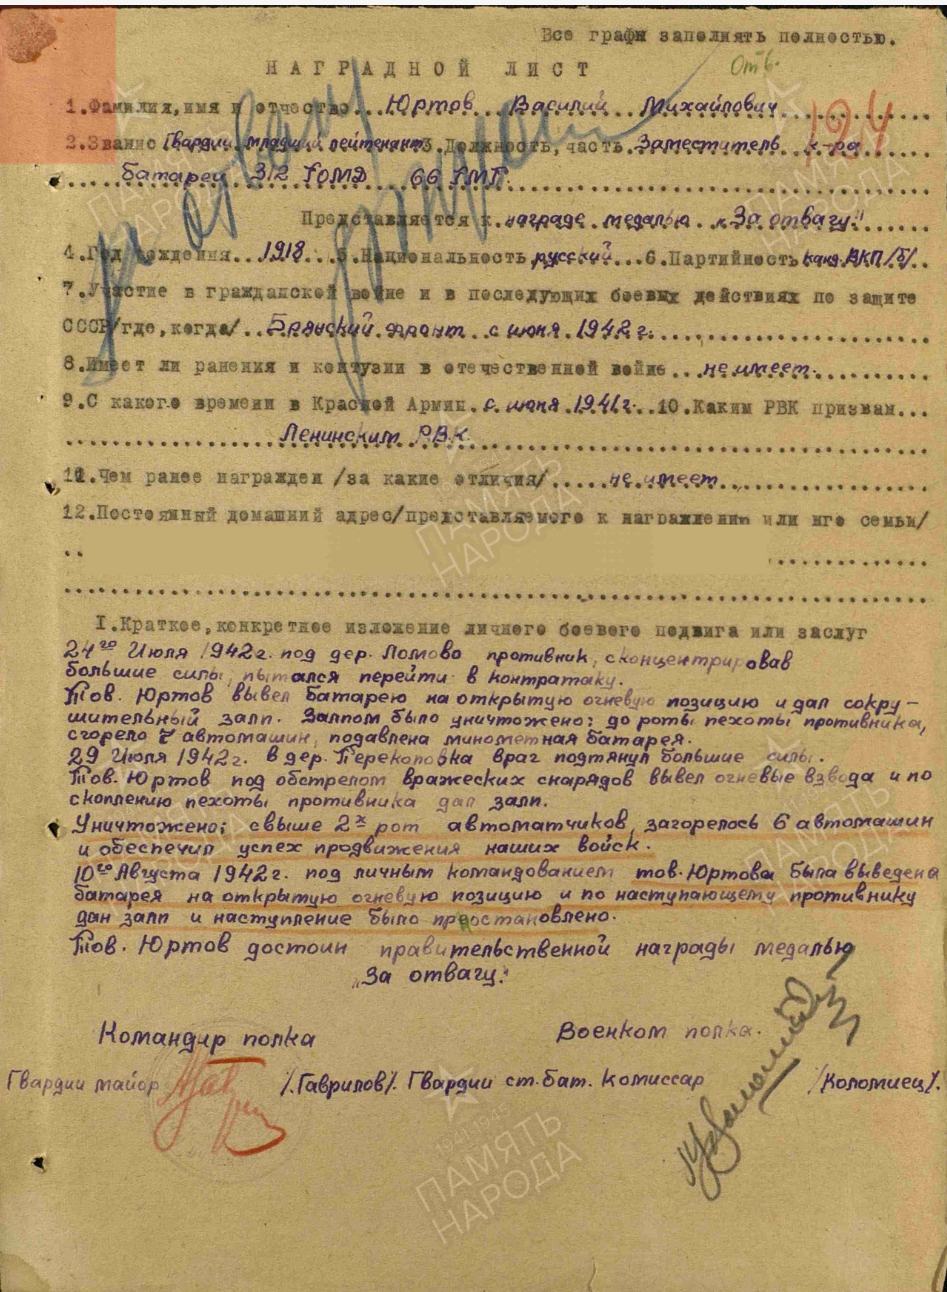 Все графы заполнять полностью.
НАГРАДНОЙ ЛИСТ
1.Фамилия,имя и отчество...Юртов Василий Михайлович
194
2.Звание Гвардии младший лейтенант 3.Должность,часть. Заместитель к-ра
батареи 312 ГОМД 66 ГМП
Представляется к награде медалью „За отвагу"
4.Год рождения...1918...5.Национальность русский...6.Партийность канд.ВКП/б/
7.Участие в гражданской войне и в последующих боевых действиях по защите
СССР/где,когда/..Брянский фронт с июня 1942г.
8.Имеет ли ранения и контузии в отечественной войне...не имеет.
9.С какого времени в Красной Армии.с июня 1941г...10.Каким РВК призван...
Ленинским РВК
11.Чем ранее награжден /за какие отличия/.....не имеет
12.Постоянный домашний адрес/представляемого к награждению или его семьи/
I.Краткое,конкретное изложение личного боевого подвига или заслуг
24го Июля 1942г. под дер. Ломово противник, сконцентрировав
большие силы, пытался перейти в контратаку.
Тов. Юртов вывел батарею на открытую огневую позицию и дал сокру-
шительный залп. Залпом было уничтожено: до роты пехоты противника,
сгорело 7 автомашин, подавлена минометная батарея.
29 Июля 1942г. в дер. Перекоповка враг подтянул большие силы.
Тов. Юртов под обстрелом вражеских снарядов вывел огневые взвода и по
скоплению пехоты противника дал залп.
Уничтожено: свыше 2х рот автоматчиков, загорелось 6 автомашин
и обеспечил успех продвижения наших войск.
10го Августа 1942г. под личным командованием тов. Юртова была выведена
батарея на открытую огневую позицию и по наступающему противнику
дан залп и наступление было приостановлено.
Тов. Юртов достоин правительственной награды медалью
„За отвагу."
Командир полка Военком полка.
Гвардии майор /Гаврилов/. Гвардии ст.бат. Комиссар /Коломиец/.
ПАМЯТЬ
НАРОДА